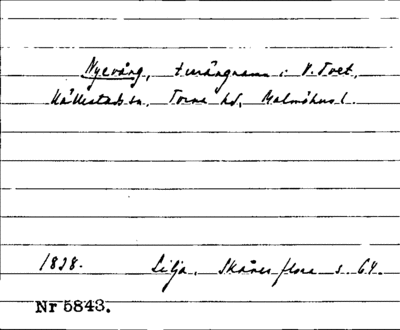 Nyevång, t. värdnamn i V. Tvet,
Hällestads sn, Torna hd, Malmöhus l.
1838. Lilja, Skånes flora s. 64.
Nr 5843.